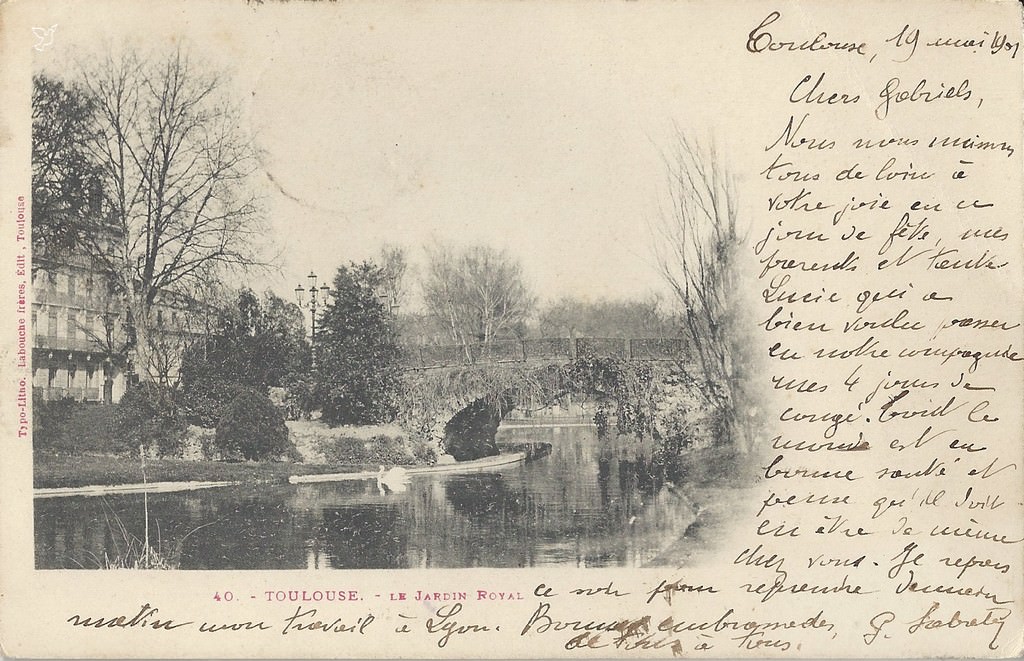 Toulouse, 19 mai 1901
Chers Gabriels,
Nous nous unissons
tous de loin à
votre joie en ce
jour de fête, mes
parents et tante
Lucie qui a
bien voulu passer
en notre compagnie
mes 4 jours de
congé. Tout le
monde est en
bonne santé et
pense qu'il doit
en être de même
chez vous. Je repars
ce soir pour reprendre demain
matin mon travail à Lyon. Bonnes embrassades,
de tous à tous. G.
Typo-Litho. Labouche frères, Édit, Toulouse
40. - TOULOUSE. - LE JARDIN ROYAL